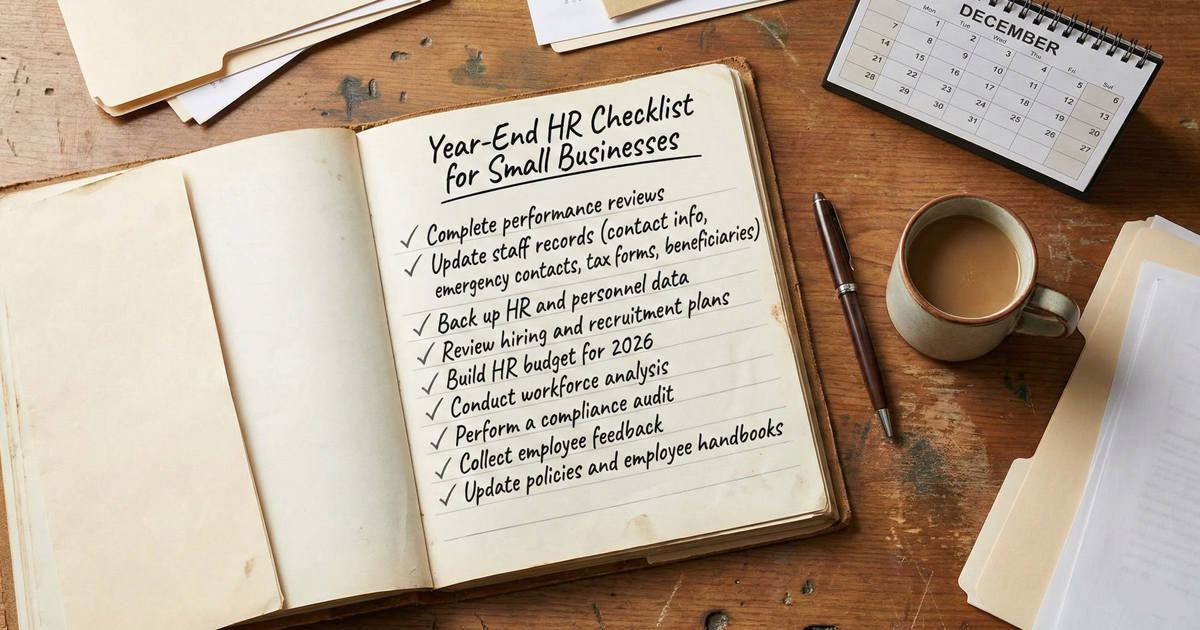 DECEMBER
Mon Tue Wed Thu Fri Sat
1 2 3 4 5 6
7 8 9 10 11 12 13
14 15 16 17 18 19 20
21 22 23 24 25 26 27
28 29 30 31
Year-End HR Checklist
for Small Businesses
✓ Complete performance reviews
✓ Update staff records (contact info,
emergency contacts, tax forms, beneficiaries)
✓ Back up HR and personnel data
✓ Review hiring and recruitment plans
✓ Build HR budget for 2026
✓ Conduct workforce analysis
✓ Perform a compliance audit
✓ Collect employee feedback
✓ Update policies and employee handbooks